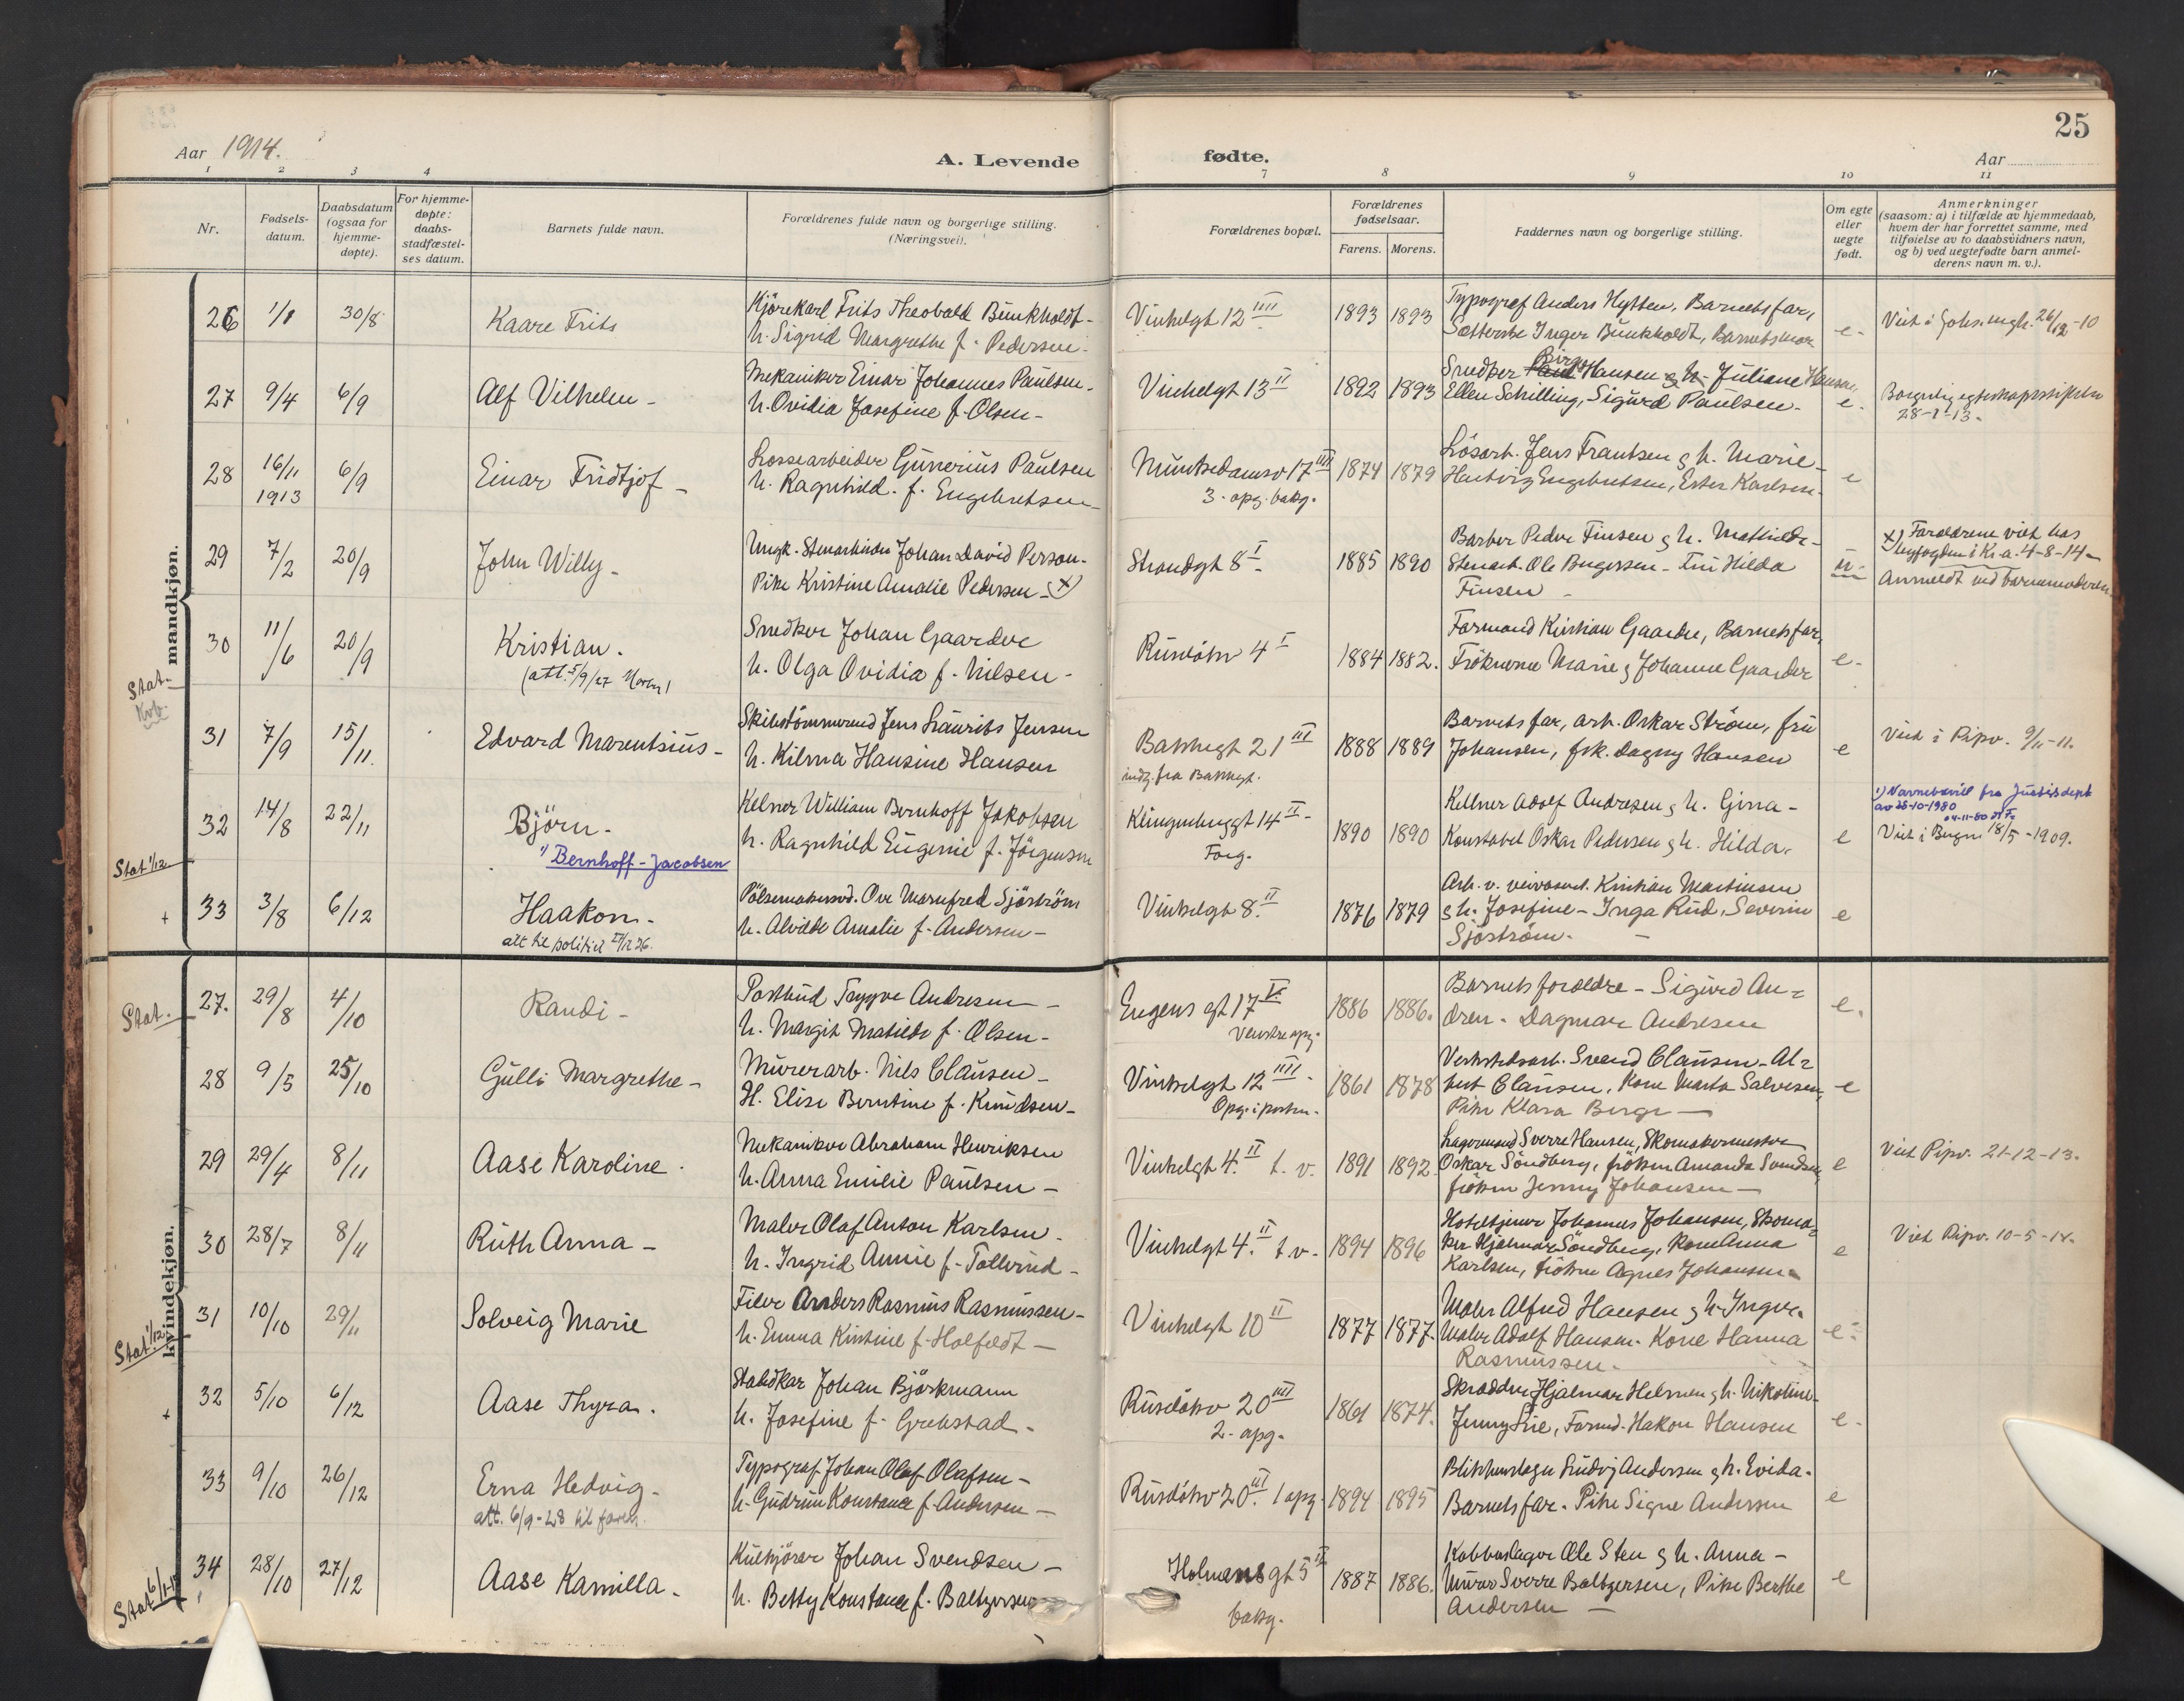 25
Aar 1914.
A. Levende
fødte.
Aar
1 2 3 4
7 8 9 10 11
Nr.
Fødsels-
datum.
Daabsdatum
(ogsaa for
hjemme-
døpte).
For hjemme-
døpte:
daabs-
stadfæstel-
ses datum.
Barnets fulde navn.
Forældrenes fulde navn og borgerlige stilling.
(Næringsvei).
Forældrenes bopæl.
Forældrenes
fødselsaar.
Farens. Morens.
Faddernes navn og borgerlige stilling.
Om egte
eller
uegte
født.
Anmerkninger
(saasom: a) i tilfælde av hjemmedaab,
hvem der har forrettet samme, med
tilføielse av to daabsvidners navn,
og b) ved uegtefødte barn anmel-
derens navn m. v.).
mandkjøn.
26 1/8 30/8 Kaare Frits
Kjörekarl Frits Theobald Bunkholdt -
h. Sigrid Margrethe f. Pedersen.
Vinkelgt 12 IIII
1893 1893
Typograf Anders Hytten, Barnets far,
Inger Bunkholdt, Barnets mor
e-
26/12-10
27 9/4 6/9 Alf Vilhelm -
Mekaniker Einar Johannes Paulsen.
h. Ovidia Josefine f. Olsen -
Vinkelgt 13 II
1892 1893
Birger
Snedker Paul Hansen & h. Juliane Hansen,
Ellen Schilling, Sigurd Paulsen -
e.
Borgerlig
28-1-13.
28 16/11 1913 6/9 Einar Fridtjof -
Lossearbeider Gunerius Paulsen
h. Ragnhild f. Engebretsen -
Munkedamsv 17 III
3. opg. bakg.
1874 1879
Lösarb. Jens Frantsen & h. Marie -
Hartvig Engebretsen, Ester Karlsen.
e
29 7/2 20/9 John Willy -
Ungk. Stenarbeider Johan David Person -
Pike Kristine Amalie Pedersen - x)
Strandgt 8 I -
1885 1890
Barber Peder Finsen & h. Mathilde -
Stenarb. Ole Bugersen - Hilda
Finsen -
u-
x) Forældrene viet hos
byfogden i Kr.a. 4-8-14 -
Anmeldt ved barnemoderen.
30 11/6 20/9 Kristian.
(att. 5/9/27
Snedker Johan Gaarder
h. Olga Ovidia f. Nilsen -
Ruselökv 4 I
1884 1882.
Formand Kristian Gaarder, Barnets far,
Fröknerne Marie & Johanne Gaarder
e-
Stat.
31 7/9 15/11. Edvard Marentsius -
Skibstömmermand Jens Laurits Jensen
h. Kilma Hansine Hansen
Bakkegt 21 III
indg. fra Bakkegt.
1888 1889
Barnets far, arb. Oskar Ström, fru
Johansen, frk. Dagny Hansen
e
Viet i Pipv. 9/11-11.
32 14/8 22/11 Björn -
1) Bernhoff-Jacobsen
Kelner William Bernhoff Jakobsen
h. Ragnhild Eugenie f. Jörgensen
Klingenberggt 14 II -
Forg.
1890 1890
Kellner Adolf Andresen & h. Gina -
Konstabel Oskar Pedersen & h. Hilda.
e
1) Navnebevill fra Justisdept
av 28-10-1980
Viet i Bergen 18/5-1909.
Stat 1/12
33 3/8 6/12 Haakon.
att til politiet
+
Pölsemakersvd. Ove Manfred Sjöström
h. Alvilde Amalie f. Andersen -
Vinkelgt 8. II
1876 1879
Arb. v. veivæsnet Kristian Martinsen
& h. Josefine - Inga Rud, Severin
Sjöström. -
e
kvindekjøn.
Stat.
27. 29/8 4/10 Randi -
Postbud Trygve Andresen -
h. Margit Matilde f. Olsen -
Engens gt 17 V
Venstre opg.
1886 1886.
Barnets forældre - Sigurd An-
dren - Dagmar Andresen
e.
28 9/5 25/10 Gulli Margrethe -
Murerarb. Nils Clausen -
H. Elise Berntine f. Knudsen -
Vinkelgt 12 IIII -
Opg. i porten.
1861 1878
Verkstedsarb. Svend Clausen - Al-
bert Clausen, Kone Marta Salvesen,
Pike Klara Berge -
e
29 29/4 8/11 Aase Karoline.
Mekaniker Abraham Henriksen
h. Anna Emilie Paulsen -
Vinkelgt 4. II t. v.
1891 1892.
Lagermand Sverre Hansen, Skomakermester
Oskar Söndberg, fröken Amanda Svendsen,
fröken Jenny Johansen -
e
Viet Pipv. 21-12-13.
30 28/7 8/11 Ruth Anna -
Maler Olaf Anton Karlsen -
h. Ingrid Annie f. Tollerud -
Vinkelgt 4. II t. v.
1894 1896
Hoteltjener Johannes Johansen, Skoma-
ker Hjalmar Söndberg, Kone Anna
Karlsen, fröken Agnes Johansen -
e
Viet Pipv. 10-5-14.
31 10/10 29/11 Solveig Marie
Filer Anders Rasmus Rasmussen -
h. Emma Kirstine f. Holfeldt -
Vinkelgt 10 II
1877 1877.
Maler Alfred Hansen & h. Inga.
Maler Adolf Hansen. Kone Hanna
Rasmussen.
e-
Stat. 1/12
32 5/10 6/12 Aase Thyra.
+
Johan Björkmann
h. Josefine f. Grebstad -
Ruselökv 20 III
2. opg.
1861 1874.
Skrædder Hjalmar Helmen & h. Nikoline -
Jenny Lie, Formd. Hakon Hansen
e-
33 9/10 26/12 Erna Hedvig -
att. 6/9-28 til faren.
Typograf Johan Olaf Olafsen -
h. Gudrun Konstance f. Andersen -
Ruselökv 20. III 1 opg.
1894 1895
Blikkenslager Ludvig Andersen & h. Evida.
Barnets far. Pike Signe Andersen
e
34 28/10 27/12 Aase Kamilla -
Kulkjörer Johan Svendsen -
h. Betty Konstance f. Baltzersen
Holmens gt 5 II
bakg.
1887 1886.
Kobberslager Ole Sten & h. Anna -
Murer Sverre Baltzersen, Pike Berthe
Andersen -
e
Stat